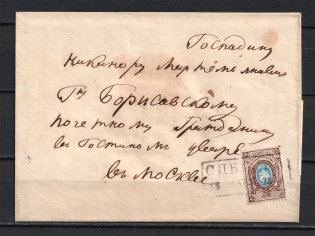 Господину
Никанору Мартемьяновичу
Гну Борисовскому
почетному Гражданину
въ Гостиномъ дворѣ
въ Москве
СПБ